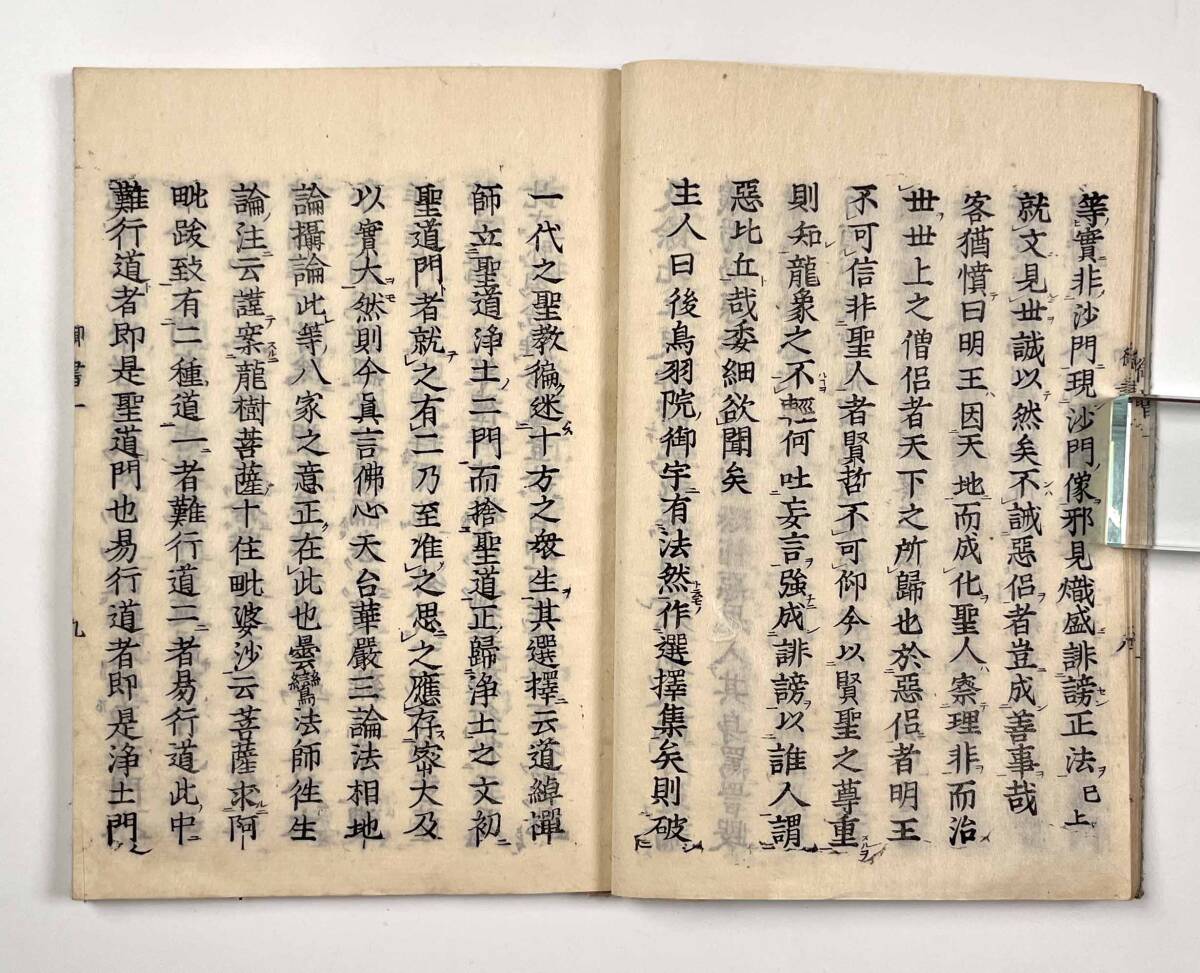 等實非沙門現沙門像邪見熾盛誹謗正法已上
就文見世誠以然矣不誡惡侶者豈成善事哉
客猶憤曰明王因天地而成化聖人察理非而治
世世上之僧侶者天下之所歸也於惡侶者明王
不可信非聖人者賢哲不可仰今以賢聖之尊重
則知龍象之不輕何吐妄言強成誹謗以誰人謂
惡比丘哉委細欲聞矣
主人曰後鳥羽院御宇有法然作選擇集矣則破
一代之聖教徧迷十方之衆生其選擇云道綽禪
師立聖道淨土二門而捨聖道正歸淨土之文初
聖道門者就之有二乃至准之思之應存密大及
以實大然則今眞言佛心天台華嚴三論法相地
論攝論此等八家之意正在此也曇鸞法師徃生
論注云謹案龍樹菩薩十住毗婆沙云菩薩求阿
毗跋致有二種道一者難行道二者易行道此中
難行道者即是聖道門也易行道者即是淨土門
御書一
九